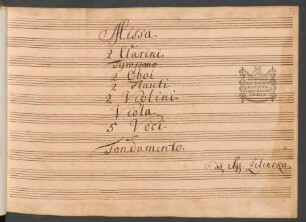 Missa.
à
2 Clarini.
Tympano
2 Oboi
2 Flauti
2 Violini
Viola
5 Voci
e
Fondamento.
Zelenka